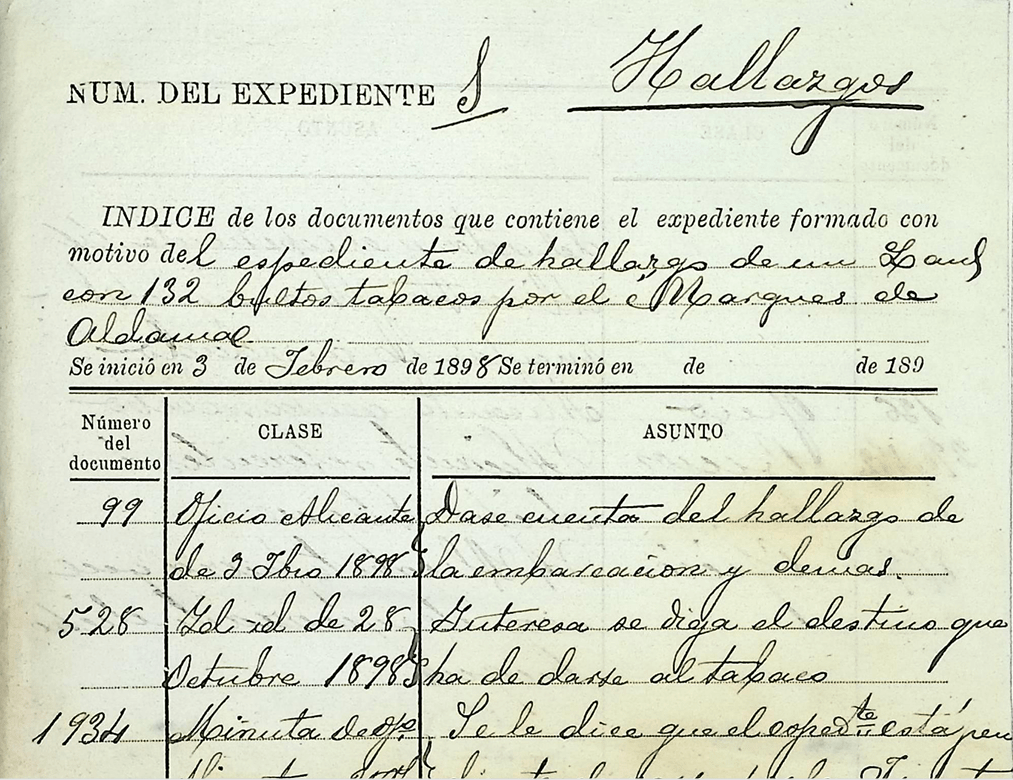 NUM. DEL EXPEDIENTE Hallazgos
INDICE de los documentos que contiene el expediente formado con
motivo del espediente de hallazgo de un Laud
con 132 bultos tabacos por el Marques de
Se inició en 3 de Febrero de 1898 Se terminó en de de 189
Número del documento CLASE ASUNTO
99 Oficio Alicante Dase cuenta del hallazgo de
de 3 1898 la embarcacion y demas.
528 Id id de 28 Interesa se diga el destino que
Octubre 1898 ha de darse al tabaco
1934 Minuta de Se le dice que el espedte está pen